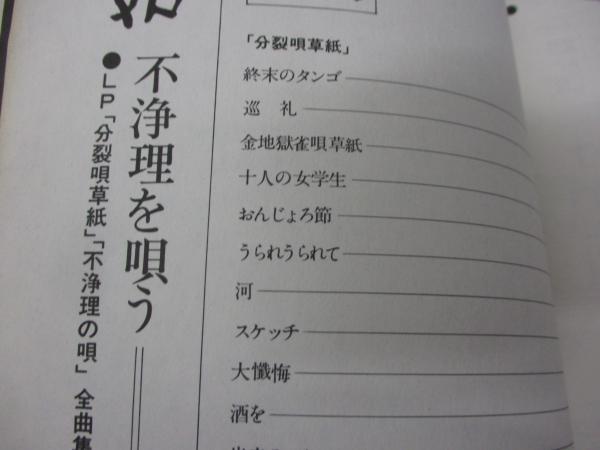 不浄理を唄う
●LP「分裂唄草紙」「不浄理の唄」全曲集
「分裂唄草紙」
終末のタンゴ
巡 礼
金地獄雀唄草紙
十人の女学生
おんじょろ節
うられうられて
河
スケッチ
大懺悔
酒を